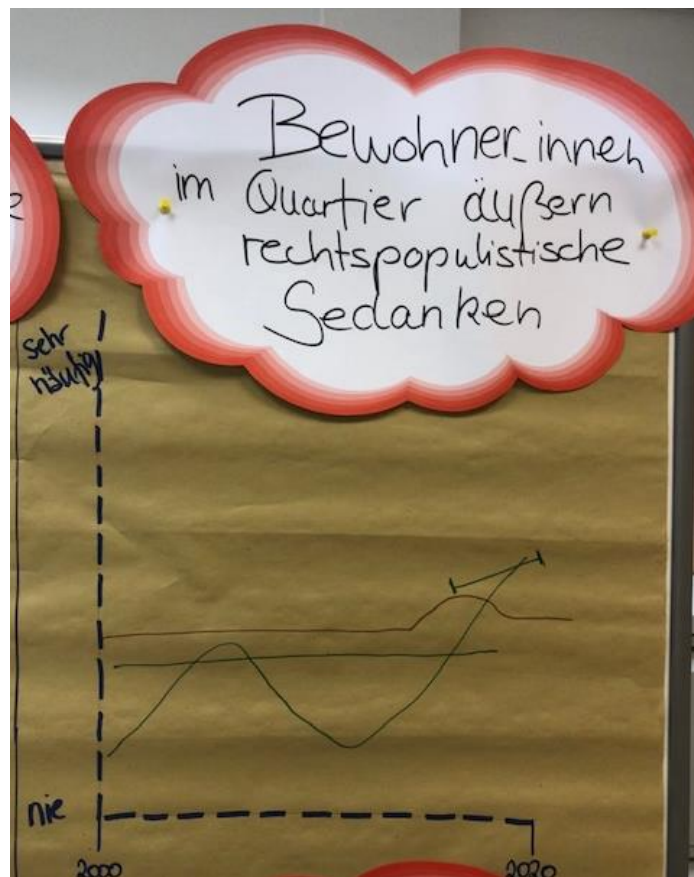 Bewohner_innen
im Quartier äußern
rechtspopulistische
Gedanken
sehr
häufig
nie
2000
2020